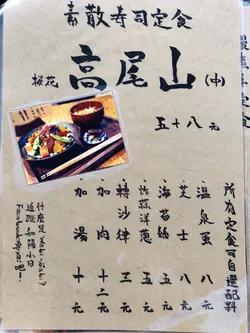 素散寿司定食
桜花 高尾山 (中)
五十八元
所有定食可自選配料
温泉蛋 八元
芝士 八元
海苔絲 五元
炸蒜洋蔥 五元
轉沙律 三元
加肉 十二元
加湯 十元
什麼是Wabi-Sabi?
追蹤和陽小日
Facebook專頁吧~